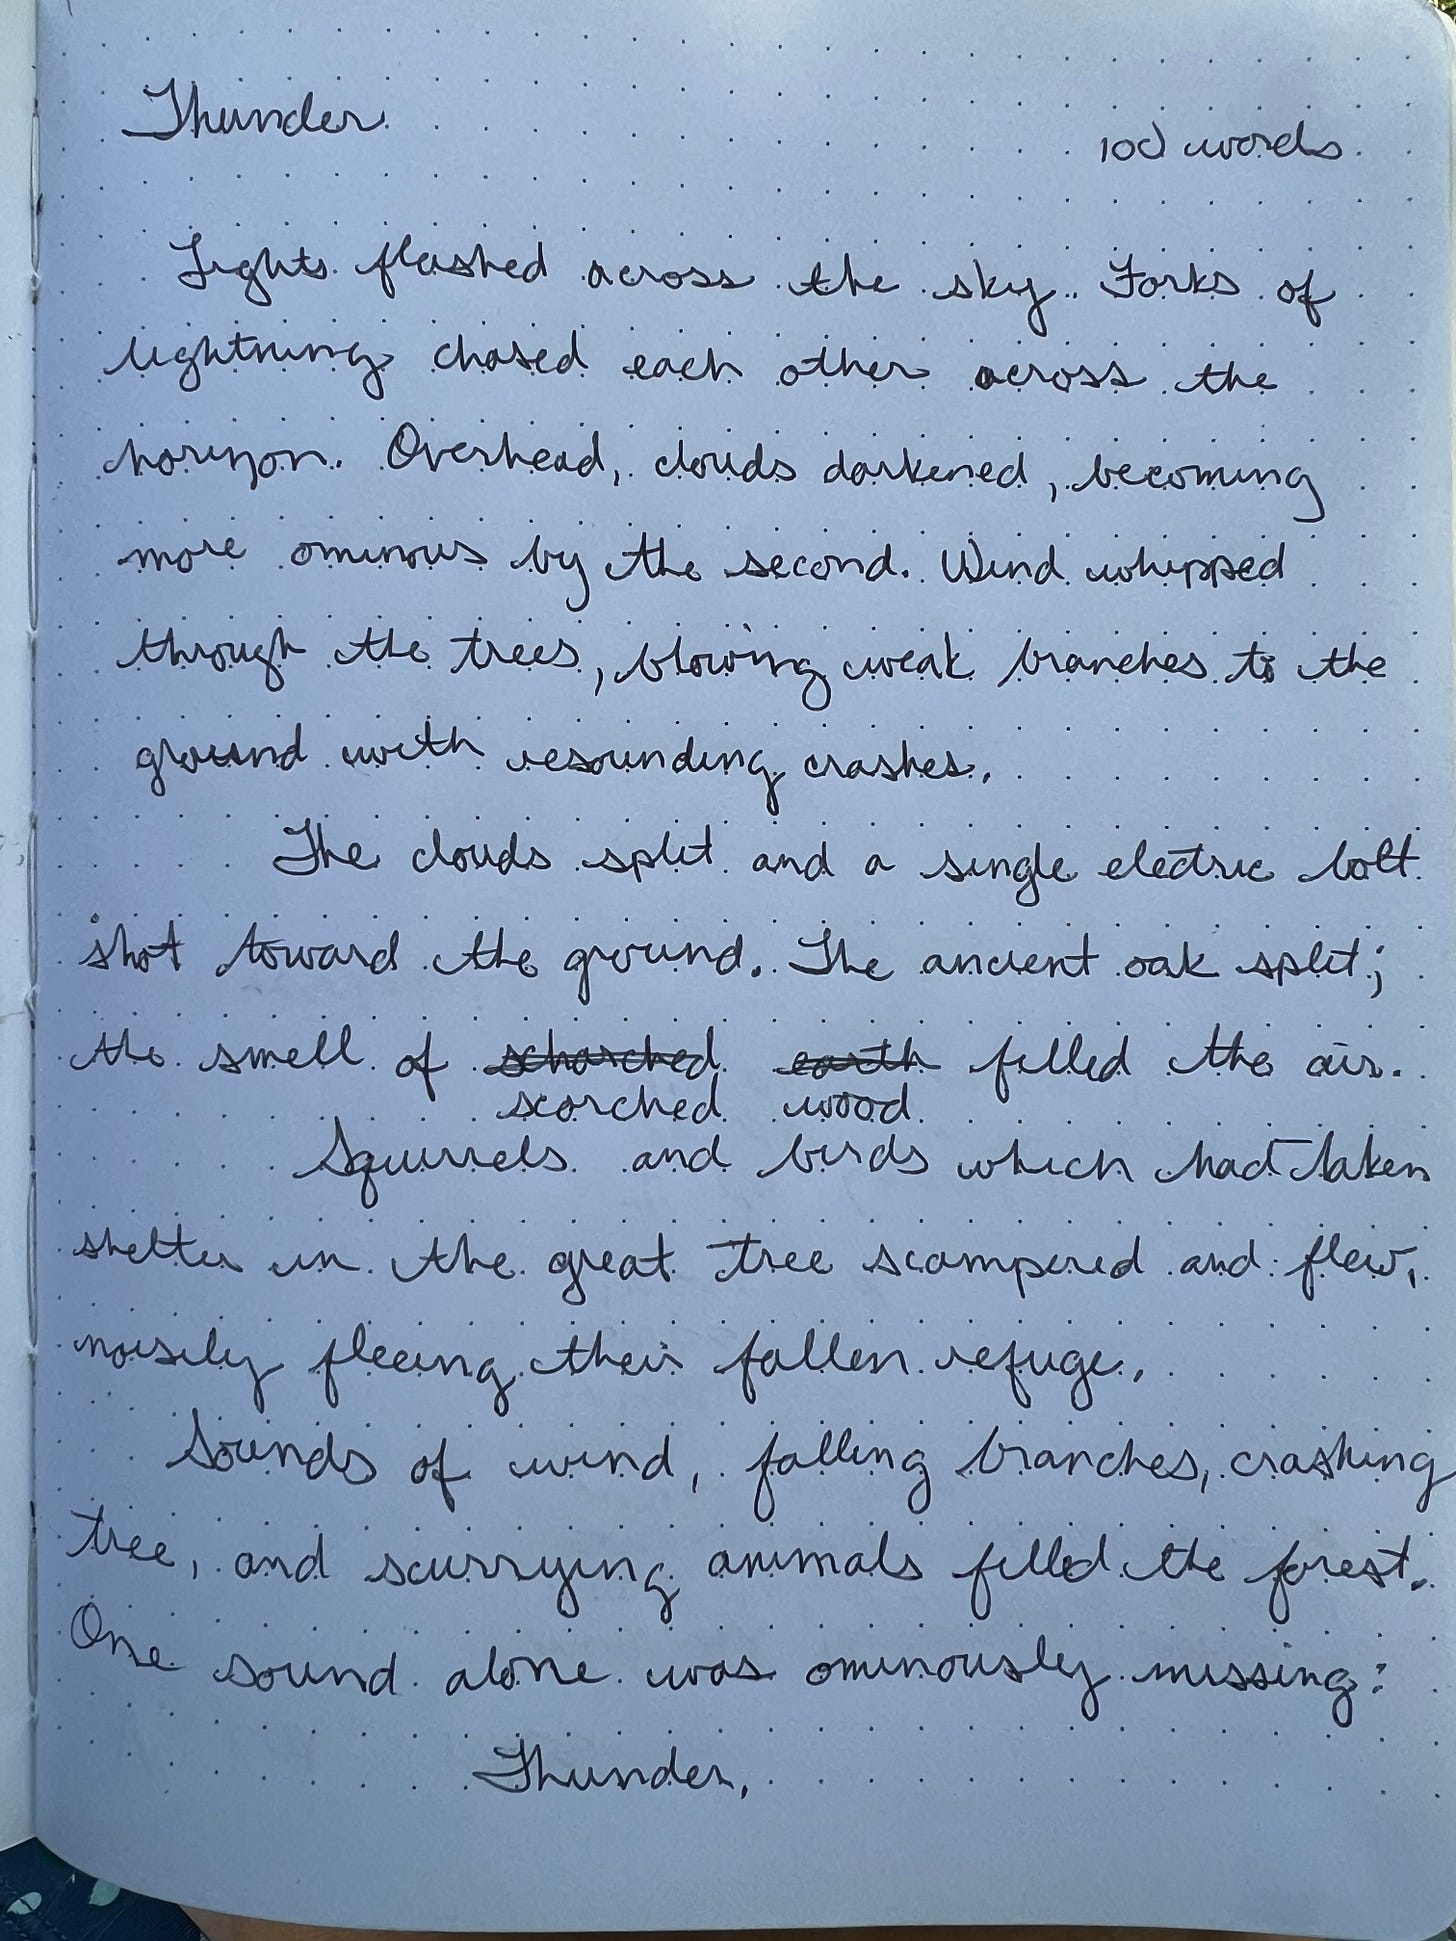 Thunder
100 words
Lights flashed across the sky. Forks of
lightning chased each other across the
horizon. Overhead, clouds darkened, becoming
more ominous by the second. Wind whipped
through the trees, blowing weak branches to the
ground with resounding crashes.
The clouds split and a single electric bolt
shot toward the ground. The ancient oak split;
the smell of scharched earth filled the air.
scorched wood
Squirrels and birds which had taken
shelter in the great tree scampered and flew,
noisily fleeing their fallen refuge.
Sounds of wind, falling branches, crashing
tree, and scurrying animals filled the forest.
One sound alone was ominously missing:
Thunder.